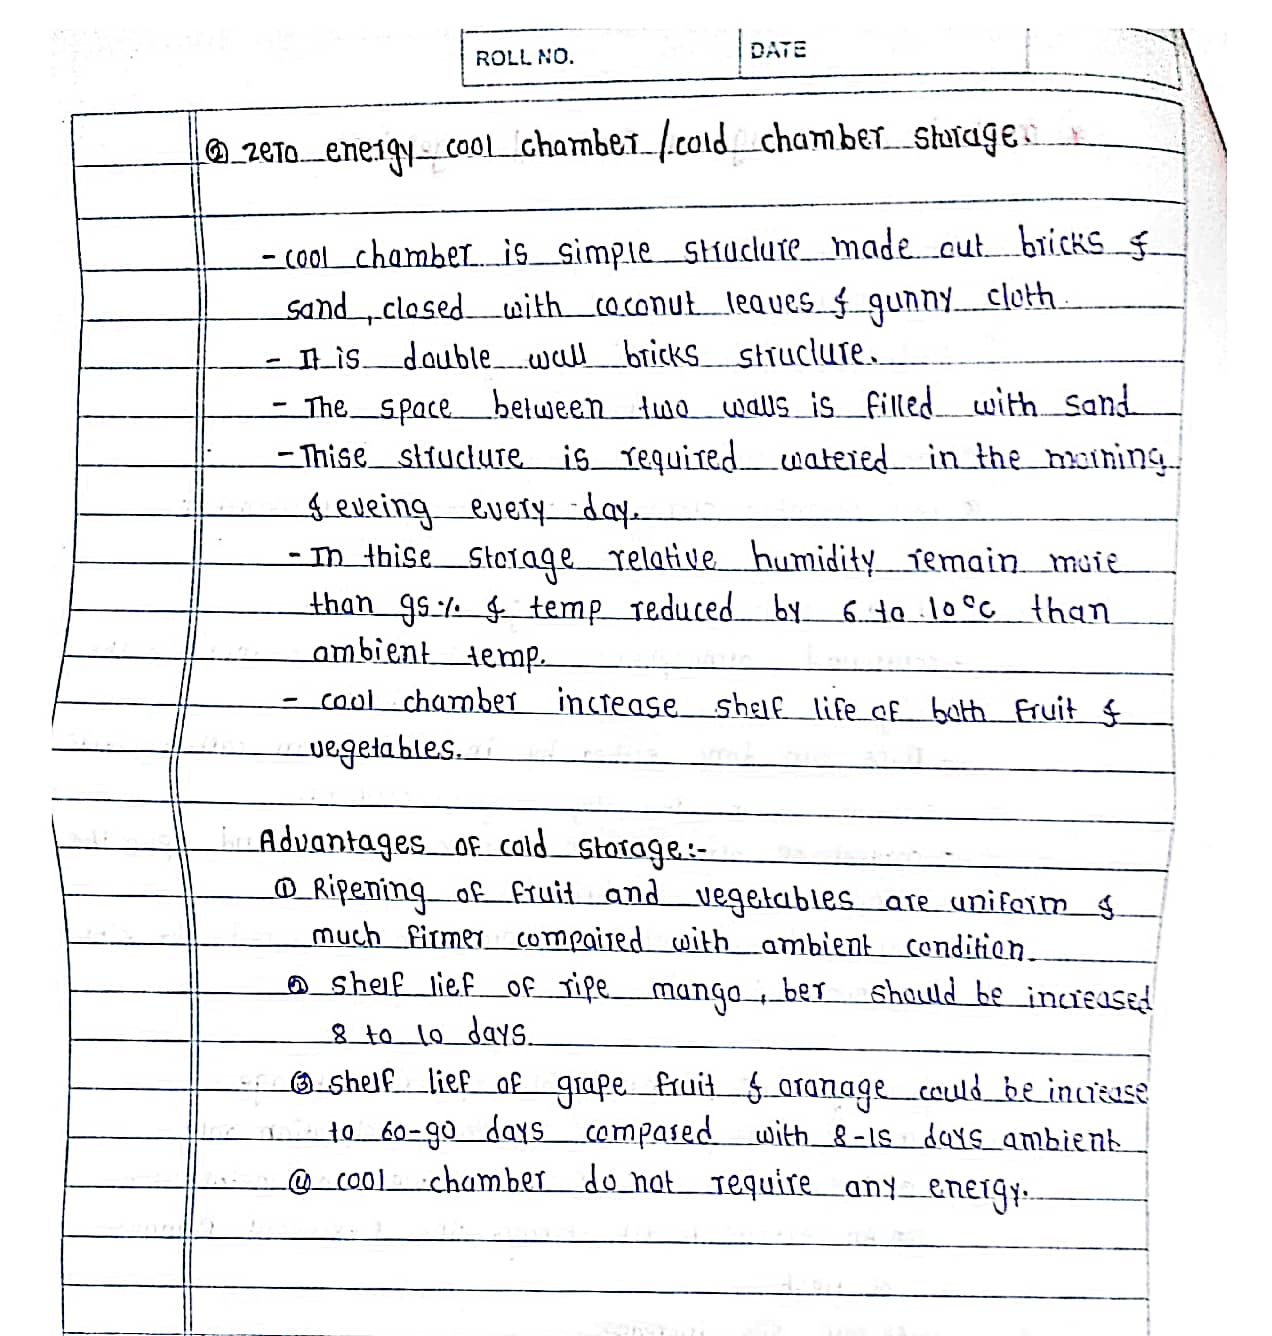 ROLL NO.
DATE
② zero energy cool chamber / cold chamber storage.
- cool chamber is simple structure made out bricks &
sand, closed with coconut leaves & gunny cloth.
- It is double wall bricks structure.
- The space between two walls is filled with sand
- Thise structure is required watered in the morning
& eveing every day.
- In thise storage relative humidity remain more
than 95% & temp reduced by 6 to 10°C than
ambient temp.
- cool chamber increase shelf life of both fruit &
vegetables.
Advantages of cold storage:-
① Ripening of fruit and vegetables are uniform &
much firmer compaired with ambient condition.
② shelf lief of ripe mango, ber should be increased
8 to 10 days.
③ shelf lief of grape fruit & oranage could be increase
to 60-90 days compared with 8-15 days ambient
④ cool chamber do not require any energy.